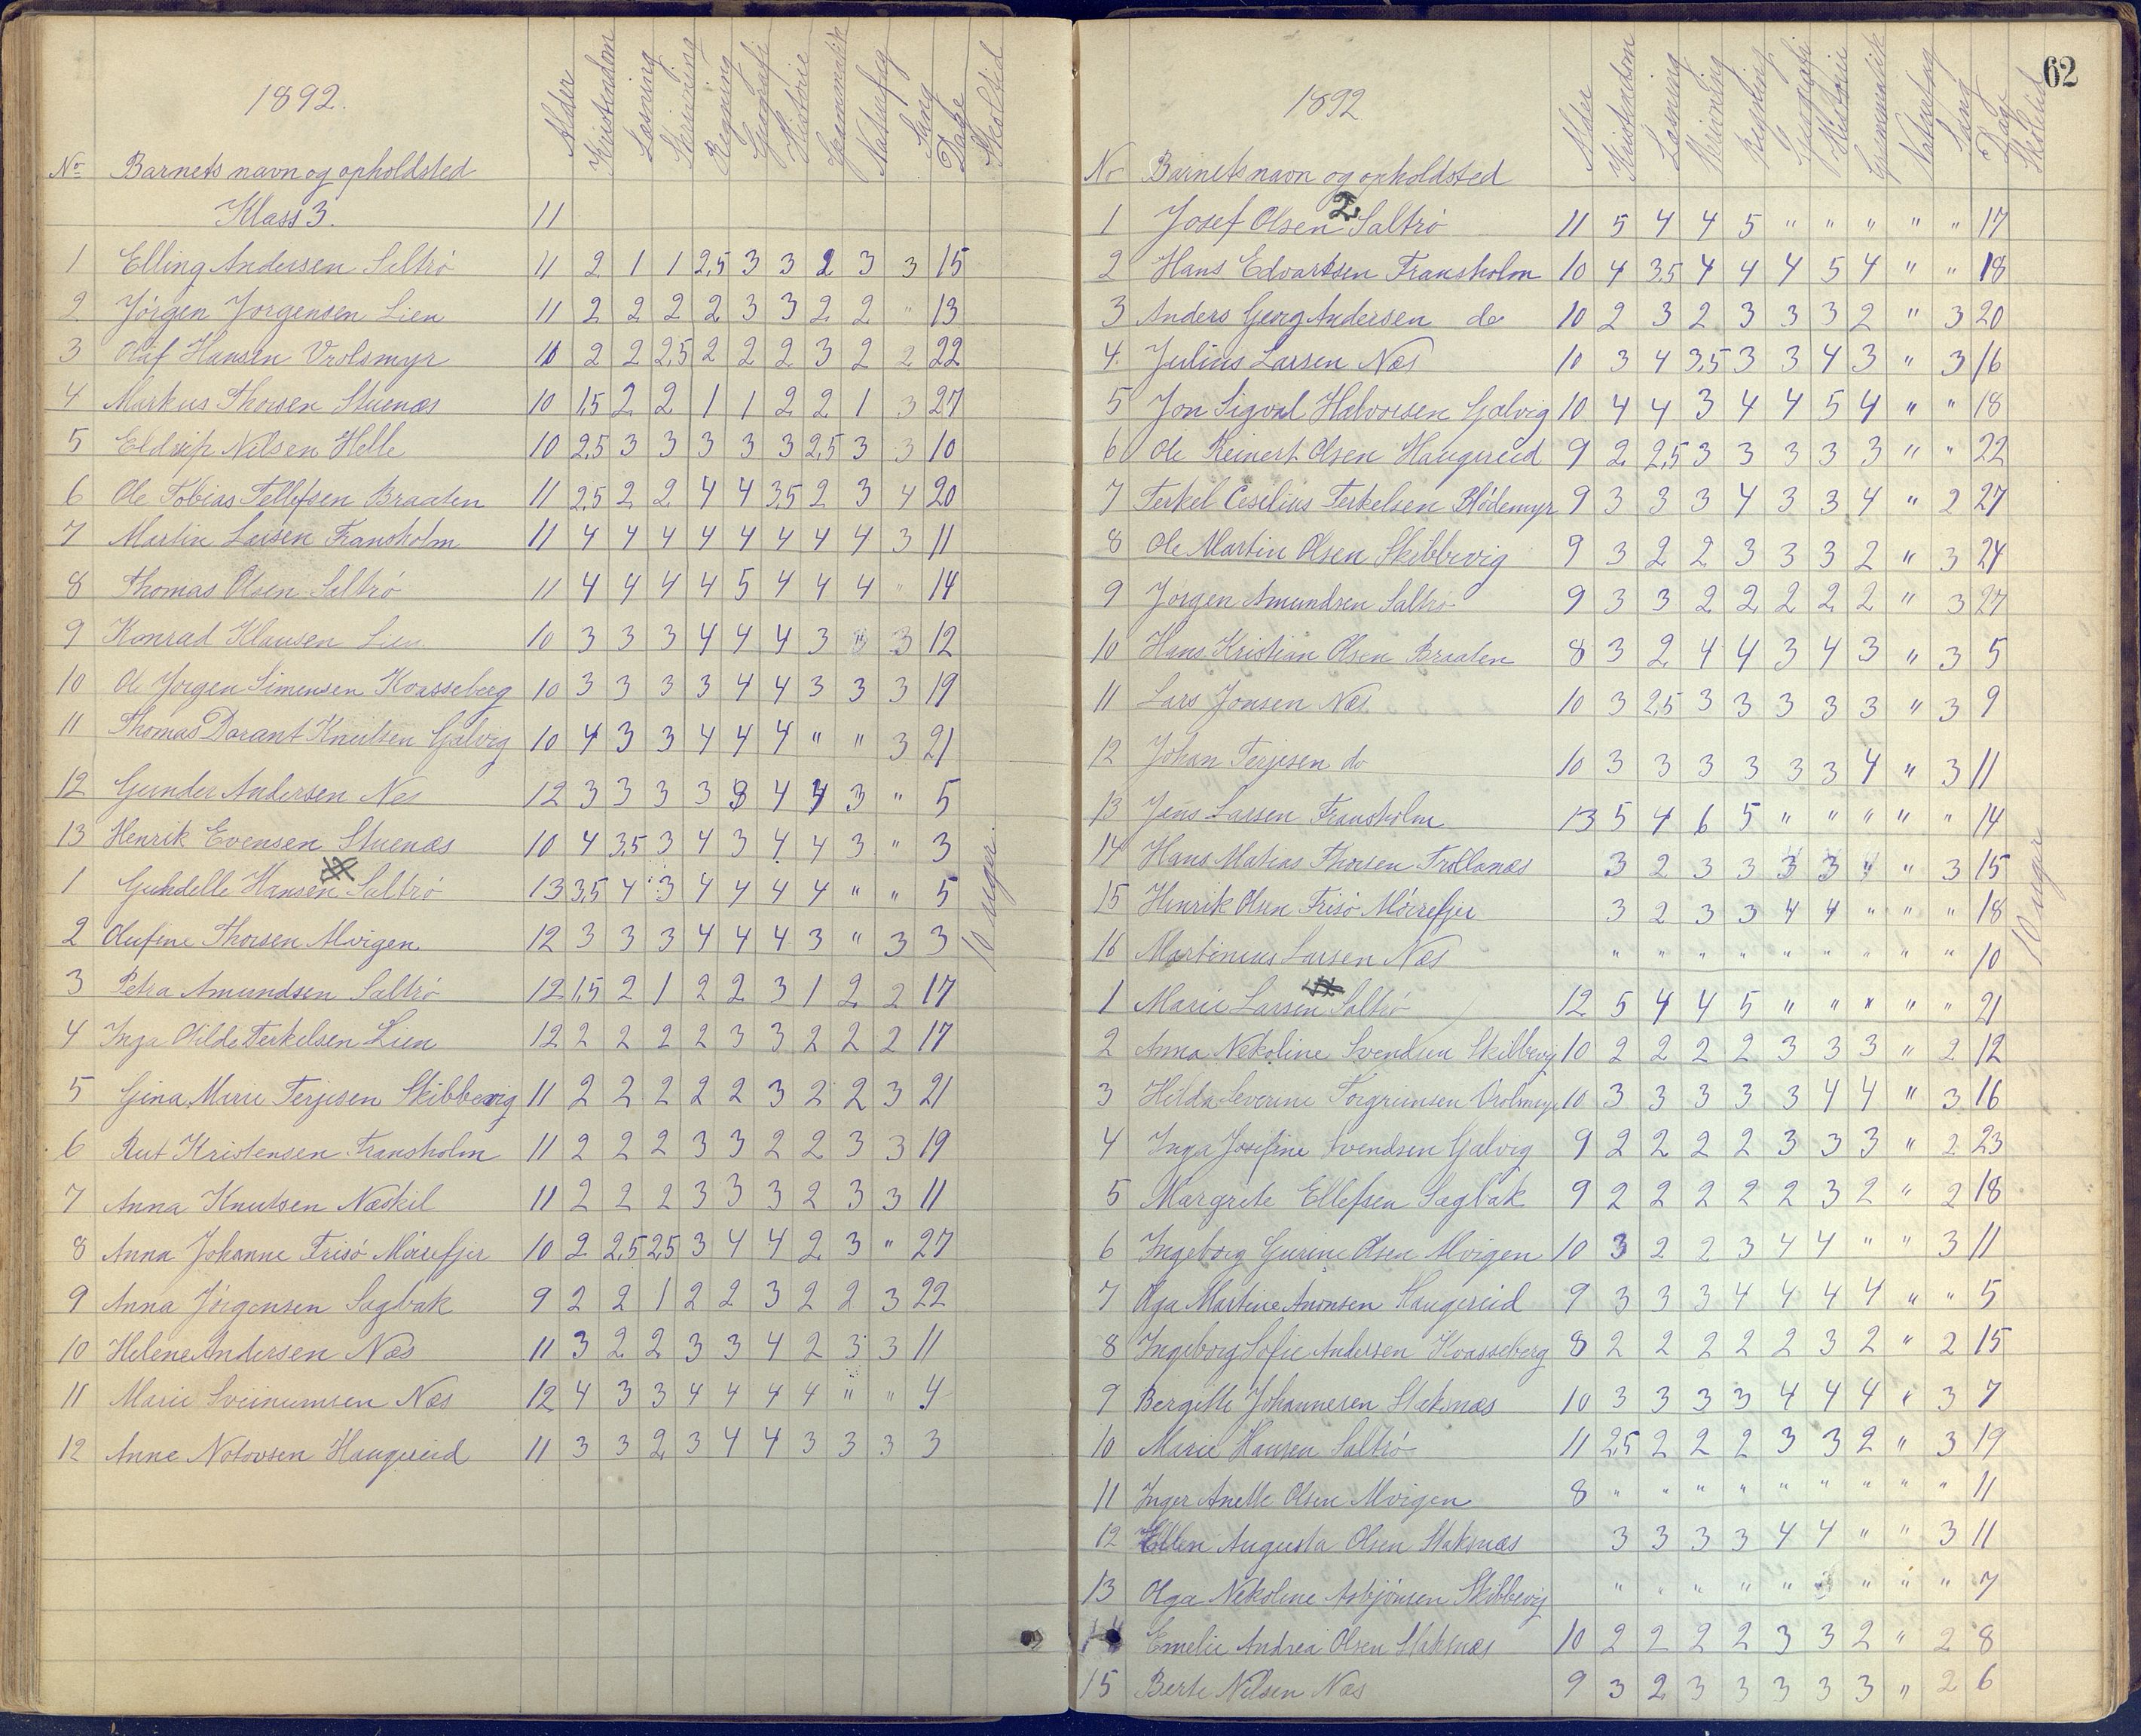 1892.
No Barnets navn og opholdsted Alder Kristendom Læsning Skrivning Regning Geografi Historie Grammatik Naturfag Sang Dage Skoletid
Klass 3. 11
1 Elling Andersen Saltrö 11 2 1 1 2,5 3 3 2 3 3 15
2 Jörgen Jorgensen Lien 11 2 2 2 2 3 3 2 2 " 13
3 Olaf Hansen Vrolsmyr 10 2 2 2,5 2 2 2 3 2 2 22
4 Markus Thorsen Stuenæs 10 1,5 2 2 1 1 2 2 1 3 27
5 Nilsen Helle 10 2,5 3 3 3 3 3 2,5 3 3 10
6 Ole Tobias Tellefsen Braaten 11 2,5 2 2 4 4 3,5 2 3 4 20
7 Martin Larsen Fransholm 11 4 4 4 4 4 4 4 4 3 11
8 Thomas Olsen Saltrö 11 4 4 4 4 5 4 4 4 " 14
9 Konrad Klausen Lien 10 3 3 3 4 4 4 3 3 12
10 Ole Jorgen Simensen Koasseberg 10 3 3 3 3 4 4 3 3 3 19
11 Thomas Dorant Knutsen Galvig 10 4 3 3 4 4 4 " " 3 21
12 Gunder Andersen Nes 12 3 3 3 3 3 4 4 3 " 5
13 Henrik Evensen Stuenæs 10 4 3,5 3 4 3 4 4 3 " 3
1 Hansen Saltrö 13 3,5 4 3 4 4 4 4 " " 5
2 Olufine Thorsen Alvigen 12 3 3 3 4 4 4 3 " 3 3
3 Petra Amundsen Saltrö 12 1,5 2 1 2 2 3 1 2 2 17
4 Inga Otilde Terkelsen Lien 12 2 2 2 2 3 3 2 2 2 17
5 Gina Marie Terjesen Skibbevig 11 2 2 2 2 2 3 2 2 3 21
6 Rut Kristensen Fransholm 11 2 2 2 3 3 2 2 3 3 19
7 Anna Knutsen Næskil 11 2 2 2 3 3 3 2 3 3 11
8 Anna Johanne Frisö Möirefjer 10 2 2,5 2,5 3 4 4 2 3 " 27
9 Anna Jörgensen Sagbak 9 2 2 1 2 2 3 2 2 3 22
10 Helene Andersen Næs 11 3 2 2 3 3 4 2 3 3 11
11 Marie Næs 12 4 3 3 4 4 4 4 " " 4
12 Anne Haugereid 11 3 3 2 3 4 4 3 3 3 3
10 uger.
62
1892
No Barnets navn og opholdsted Alder Kristendom Læsning Skrivning Regning Geografi Historie Grammatik Naturfag Sang Dage Skoletid
2
1 Josef Olsen Saltrö 11 5 4 4 5 " " " " " 17
2 Hans Edvartsen Fransholm 10 4 3,5 4 4 4 5 4 " " 18
3 Anders Georg Andersen do 10 2 3 2 3 3 3 2 " 3 20
4. Julius Larsen Næs 10 3 4 3,5 3 3 4 3 " 3 16
5 Jon Sigval Halvorsen Galvig 10 4 4 3 4 4 5 4 " " 18
6 Ole Reinert Olsen Haugereid 9 2 2,5 3 3 3 3 3 " " 22
7 Terkel Ceselius Terkelsen Blödemyr 9 3 3 3 4 3 3 4 " 2 27
8 Ole Martin Olsen Skibbevig 9 3 2 2 3 3 3 2 " 3 24
9 Jorgen Amundsen Saltrö 9 3 3 2 2 2 2 2 " 3 27
10 Hans Kristian Olsen Braaten 8 3 2 4 4 3 4 3 " 3 5
11 Lars Jonsen Næs 10 3 2,5 3 3 3 3 3 " 3 9
12 Johan Terjesen do 10 3 3 3 3 3 3 4 " 3 11
13 Jens Larsen Fransholm 13 5 4 6 5 " " " " " 14
14 Hans Matias Thorsen Trollonæs 3 2 3 3 3 3 " " 3 15
15 Henrik Olsen Frisö Möirefjer 3 2 3 3 4 4 " " " 18
16 Martinius Larsen Næs " " " " " " " " " 10
1 Marie Larsen Saltrö 12 5 4 4 5 " " " " " 21
2 Anna Nekoline Svendsen Skibbevig 10 2 2 2 2 3 3 3 " 2 12
3 Hilda Severine Torgrimsen Vrolsmyr 10 3 3 3 3 3 4 4 " 3 16
4 Inga Josefine Svendsen Galvig 9 2 2 2 2 3 3 3 " 2 23
5 Margrete Ellefsen Sagbak 9 2 2 2 2 2 3 2 " 2 18
6 Ingeborg Gurine Olsen Alvigen 10 3 2 2 3 4 4 " " 3 11
7 Olga Martine Anonsen Haugereid 9 3 3 3 4 4 4 4 " " 5
8 Ingeborg Sofie Andersen Koasseberg 8 2 2 2 2 2 3 2 " 2 15
9 Bergitte Johannesen Staksnæs 10 3 3 3 3 4 4 4 " 3 7
10 Marie Hansen Saltrö 11 2,5 2 2 2 3 3 2 " 3 19
11 Inger Anette Olsen Alvigen 8 " " " " " " " " " 11
12 Ellen Augusta Olsen Staksnæs 3 3 3 3 4 4 " " 3 11
13 Olga Nekoline Asbjönsen Skibbevig " " " " " " " " " 7
14 Emelie Andrea Olsen Staksnæs 10 2 2 2 2 3 3 2 " 2 8
15 Berte Nilsen Næs 9 3 2 3 3 3 3 3 " 2 6
10 uger